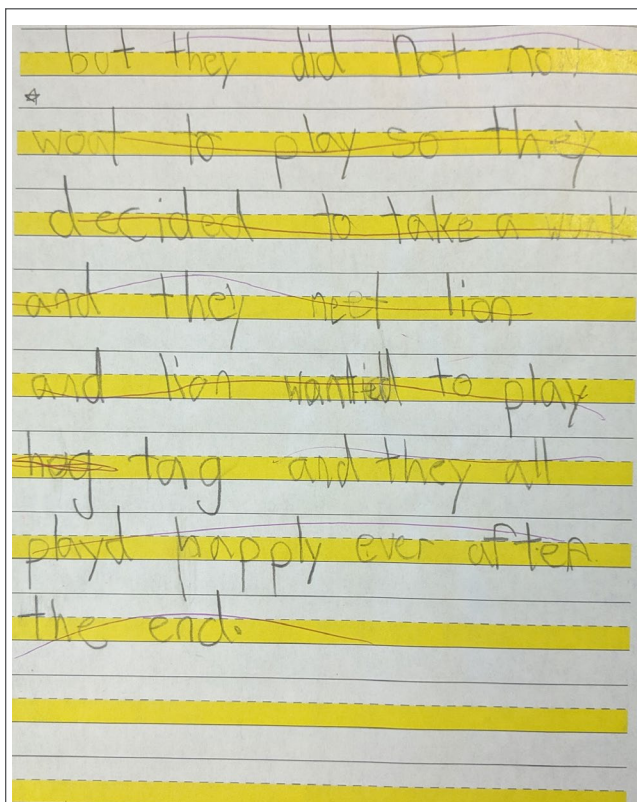 but they did Not not
wont to play so they
decided to take a wolk
and they met lion
and lion wantied to play
hag tag and they all
playd happly ever after
the end.